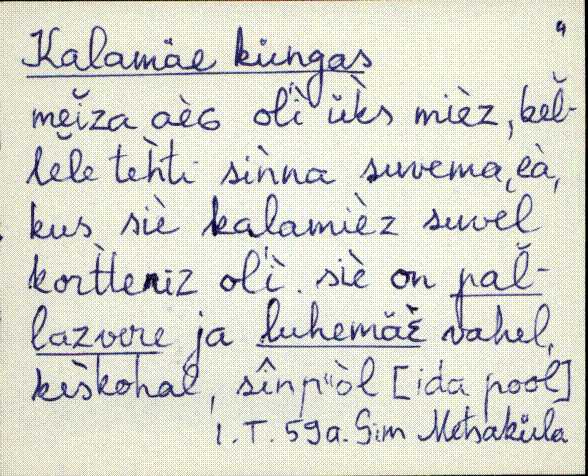 4
Kalamäe küngas
mĕĭza aèɢ olì ǜks mièz, kĕl̆-
lĕle teh̀ti siǹna suvema̭eà,
kus siè kalamièz suvel
kort̀teniz olì. siè on pal̆-
lazvere ja luhemäè vahel,
kèskohal, sîn piìòl [ida pool]
I. T. 59a. Sim Metsaküla